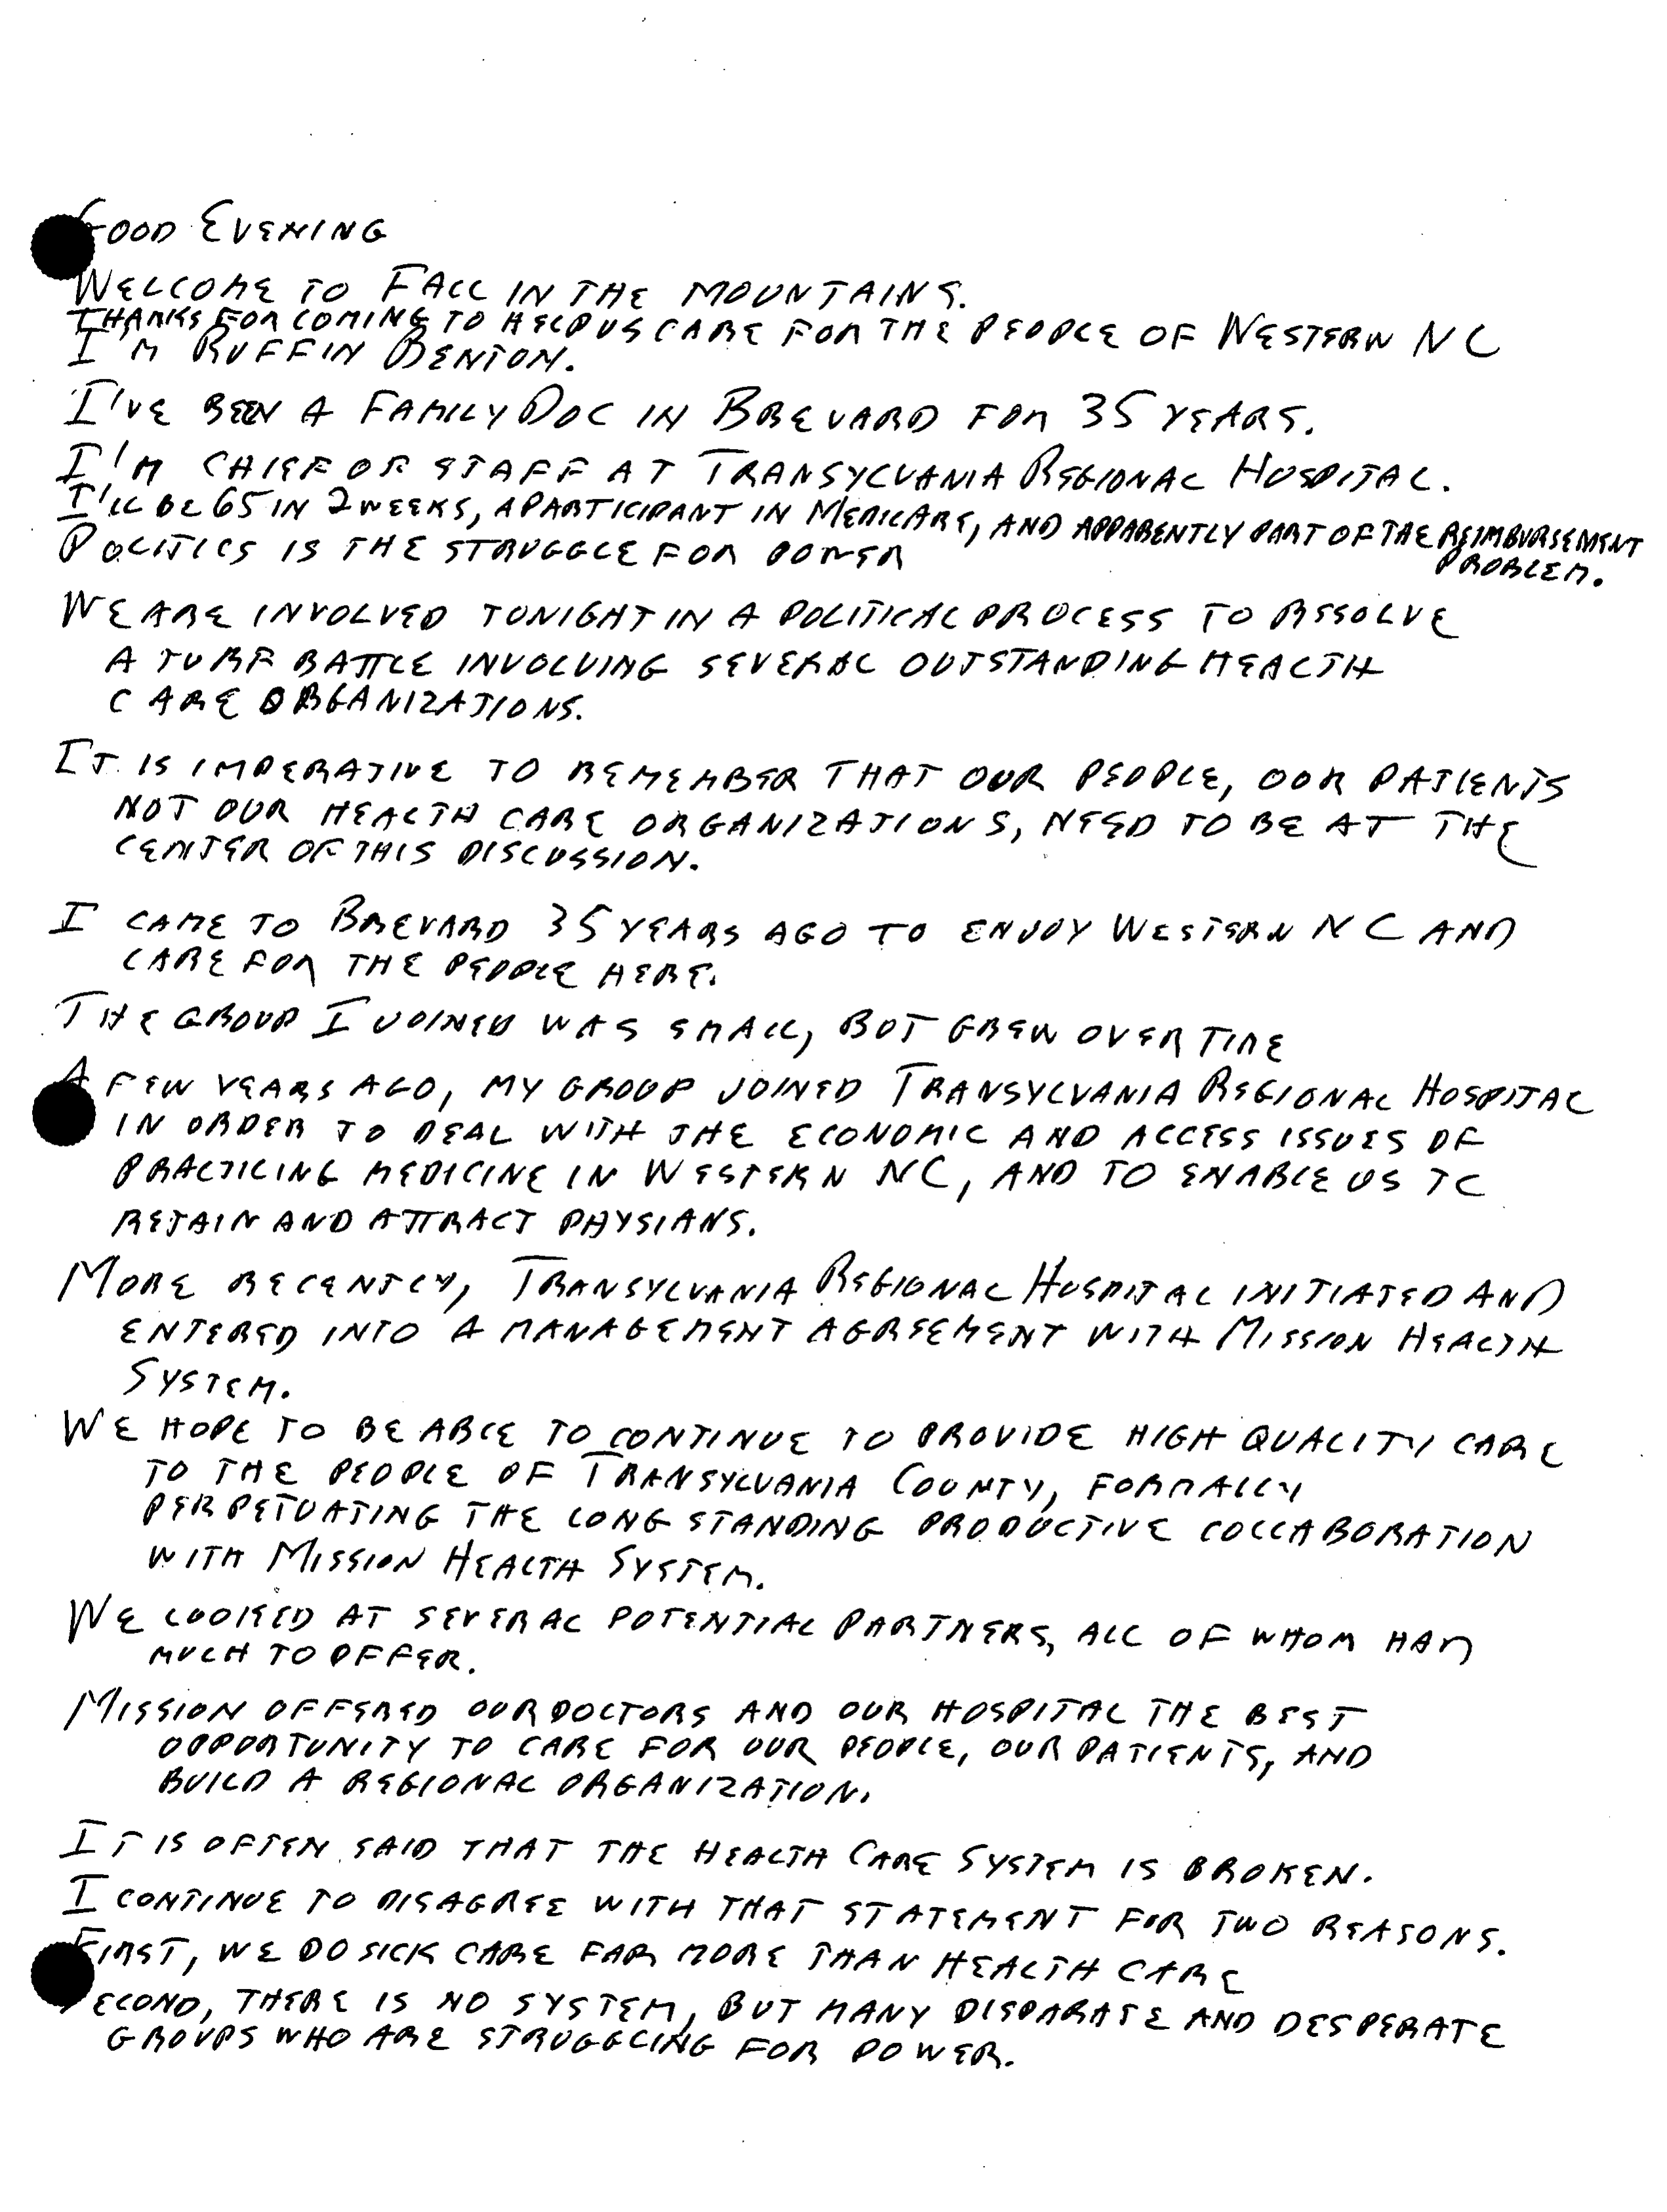 GOOD EVENING
WELCOME TO FALL IN THE MOUNTAINS.
THANKS FOR COMING TO HELP US CARE FOR THE PEOPLE OF WESTERN NC
I'M RUFFIN BENTON.
I'VE BEEN A FAMILY DOC IN BREVARD FOR 35 YEARS.
I'M CHIEF OF STAFF AT TRANSYLVANIA REGIONAL HOSPITAL.
I'LL BE 65 IN 2 WEEKS, A PARTICIPANT IN MEDICARE, AND APPARENTLY PART OF THE REIMBURSEMENT
PROBLEM.
POLITICS IS THE STRUGGLE FOR POWER
WE ARE INVOLVED TONIGHT IN A POLITICAL PROCESS TO RESOLVE
A TURF BATTLE INVOLVING SEVERAL OUTSTANDING HEALTH
CARE ORGANIZATIONS.
IT IS IMPERATIVE TO REMEMBER THAT OUR PEOPLE, OUR PATIENTS
NOT OUR HEALTH CARE ORGANIZATIONS, NEED TO BE AT THE
CENTER OF THIS DISCUSSION.
I CAME TO BREVARD 35 YEARS AGO TO ENJOY WESTERN NC AND
CARE FOR THE PEOPLE HERE.
THE GROUP I JOINED WAS SMALL, BUT GREW OVER TIME
A FEW YEARS AGO, MY GROUP JOINED TRANSYLVANIA REGIONAL HOSPITAL
IN ORDER TO DEAL WITH THE ECONOMIC AND ACCESS ISSUES OF
PRACTICING MEDICINE IN WESTERN NC, AND TO ENABLE US TO
RETAIN AND ATTRACT PHYSIANS.
MORE RECENTLY, TRANSYLVANIA REGIONAL HOSPITAL INITIATED AND
ENTERED INTO A MANAGEMENT AGREEMENT WITH MISSION HEALTH
SYSTEM.
WE HOPE TO BE ABLE TO CONTINUE TO PROVIDE HIGH QUALITY CARE
TO THE PEOPLE OF TRANSYLVANIA COUNTY, FORMALLY
PERPETUATING THE LONG STANDING PRODUCTIVE COLLABORATION
WITH MISSION HEALTH SYSTEM.
WE LOOKED AT SEVERAL POTENTIAL PARTNERS, ALL OF WHOM HAD
MUCH TO OFFER.
MISSION OFFERED OUR DOCTORS AND OUR HOSPITAL THE BEST
OPPORTUNITY TO CARE FOR OUR PEOPLE, OUR PATIENTS, AND
BUILD A REGIONAL ORGANIZATION.
IT IS OFTEN SAID THAT THE HEALTH CARE SYSTEM IS BROKEN.
I CONTINUE TO DISAGREE WITH THAT STATEMENT FOR TWO REASONS.
FIRST, WE DO SICK CARE FAR MORE THAN HEALTH CARE
SECOND, THERE IS NO SYSTEM, BUT MANY DISPARATE AND DESPERATE
GROUPS WHO ARE STRUGGLING FOR POWER.